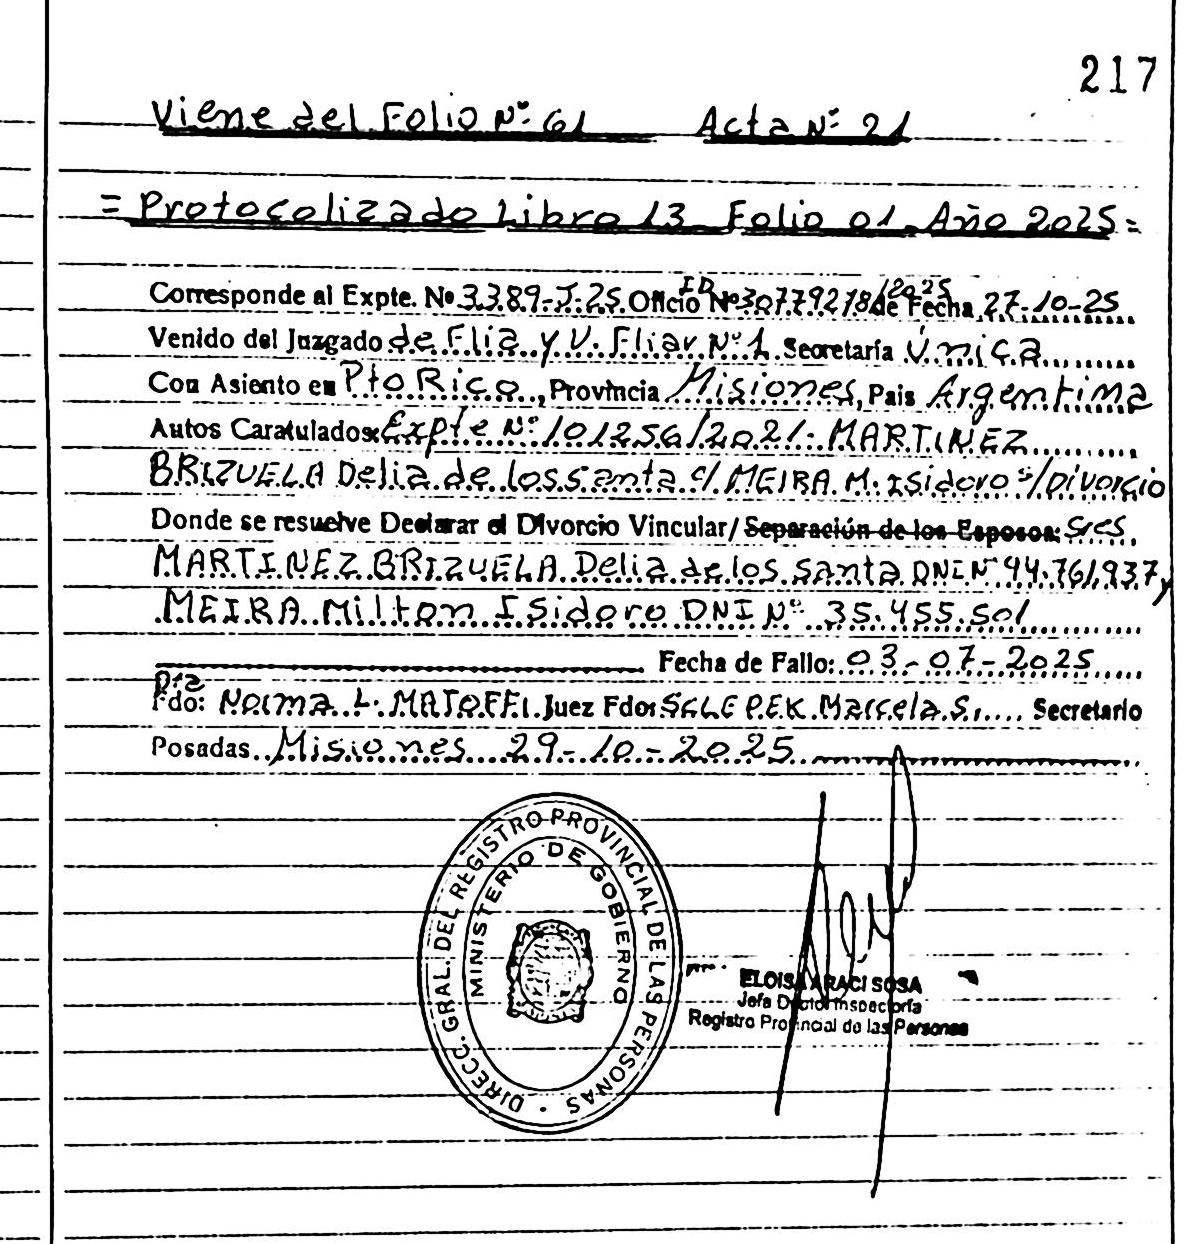 217
Viene del Folio Nº 61 Acta Nº 21
= Protocolizado Libro 13 - Folio 01 - Año 2025 =
Corresponde al Expte. Nº 3389-J-25 Oficio ID Nº 30779218/2025 de Fecha 27-10-25
Venido del Juzgado de Flia y V. Fliar Nº 1 Secretaría Única
Con Asiento en Pto Rico, Provincia Misiones, Pais Argentina
Autos Caratulados: Expte Nº 101256/2021: MARTINEZ
BRIZUELA Delia de los Santa c/ MEIRA M. Isidoro s/ Divorcio
Donde se resuelve Declarar el Divorcio Vincular/Separación de los Esposos: Sres
MARTINEZ BRIZUELA Delia de los Santa DNI Nº 94.761.937 y
MEIRA Milton Isidoro DNI Nº 35.455.501
Fecha de Fallo: 03-07-2025
Dra
Fdo: Norma L. MATOFFI Juez Fdo: SCLEPEK Marcela S. Secretario
Posadas Misiones 29-10-2025
DIRECC. GRAL. DEL REGISTRO PROVINCIAL DE LAS PERSONAS
MINISTERIO DE GOBIERNO
ELOISA ARACI SOSA
Jefa Dpto Inspectoría
Registro Provincial de las Personas